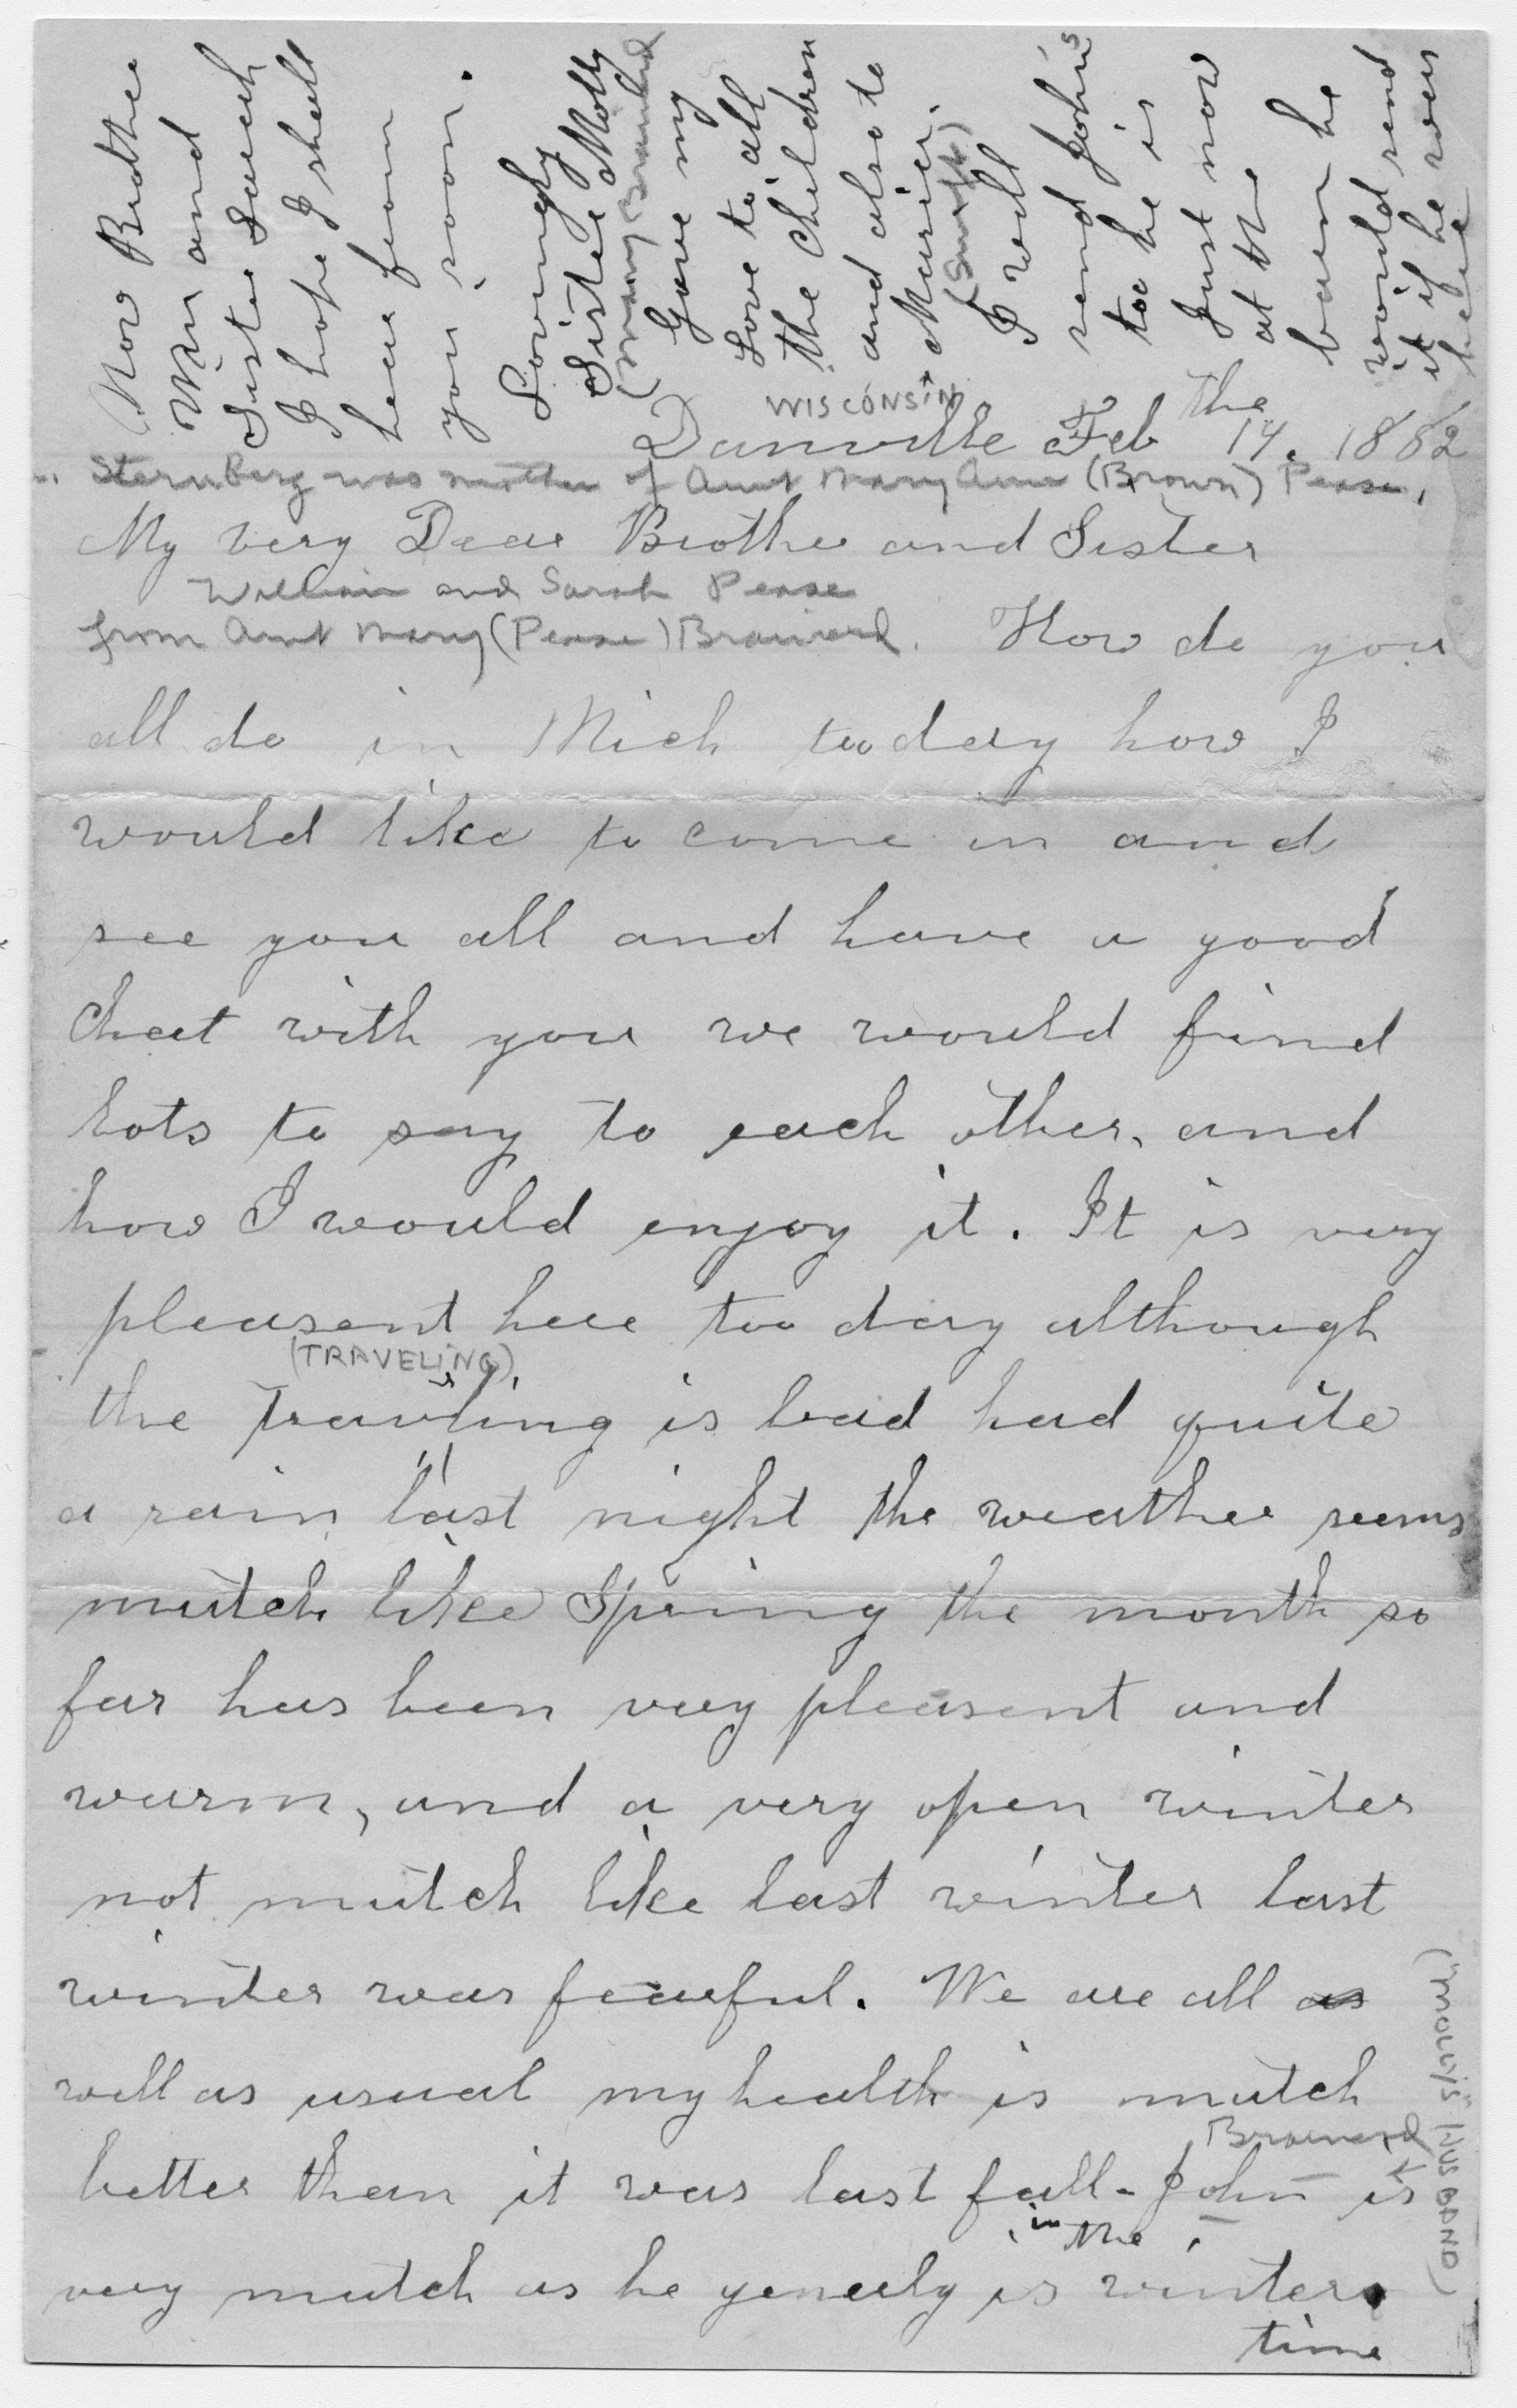 Now Brother
Wm and
Sister Sarah
I hope I shall
hear from
you soon.
Lovingly
Sister Molly
(Mary Brainard
Give my
Love to all
the Children
and also to
Mariar.
(Smith)
I will
send John's
too he is
Just now
at the
barn he
would send
it if he was
here
WISCONSIN
Danville Feb the 14. 1882
Sternberg was mother of Aunt Mary Ann (Brown) Pease,
My very Dear Brother and Sister
William and Sarah Pease
from Aunt Mary (Pease) Brainerd. How do you
all do in Mich too day how I
would like to come in and
see you all and have a good
Chat with you we would find
lots to say to each other, and
how I would enjoy it. It is very
pleasent here too day although
(TRAVELING)
the Travling is bad had quite
a rain last night the weather seems
mutch like Spring the month so
far has been very pleasent and
warm, and a very open winter
not mutch like last winter last
winter was fearful. We are all as
well as usual my health is mutch
Brainerd
better than it was last fall - John is
in the
very mutch as he generly is winter
time
("MOLLY'S" HUSBAND)